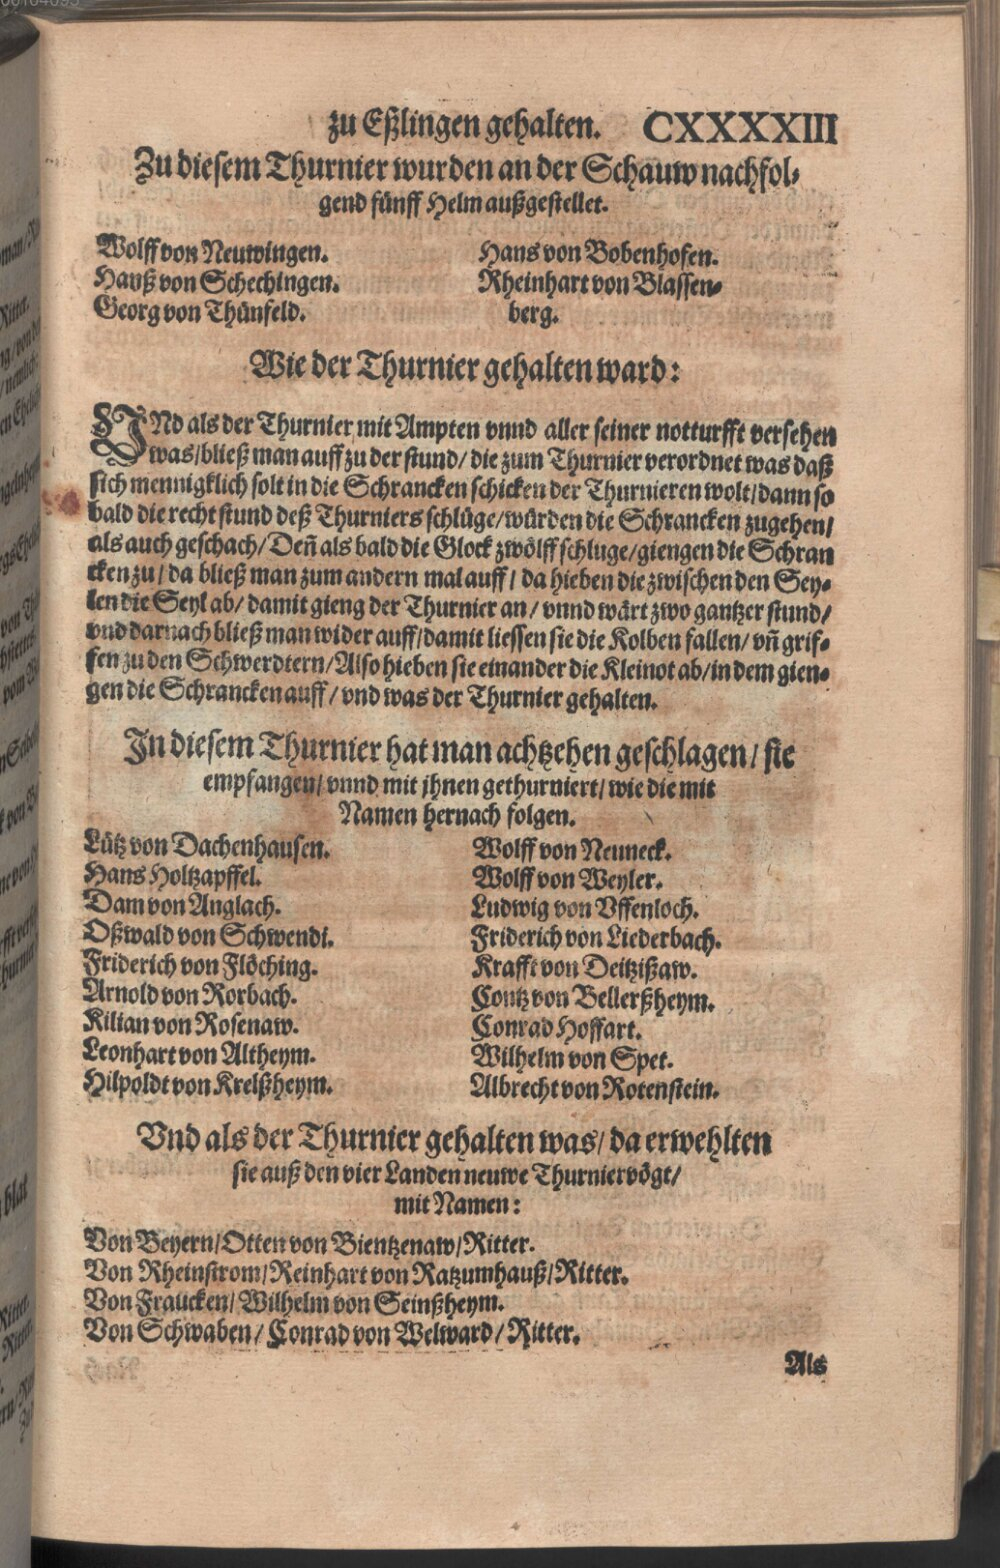 zu Eßlingen gehalten. CXXXXIII
Zu diesem Thurnier wurden an der Schauw nachfol-
gend fünff Helm außgestellet.
Wolff von Neuwingen.
Hauß von Schechingen.
Georg von Thünfeld.
Hans von Bobenhofen.
Rheinhart von Blassen-
berg.
Wie der Thurnier gehalten ward:
VNd als der Thurnier mit Ampten vnnd aller seiner notturfft versehen
was/bließ man auff zu der stund/ die zum Thurnier verordnet was daß
sich mennigklich solt in die Schrancken schicken der Thurnieren wolt/dann so
bald die recht stund deß Thurniers schlüge/würden die Schrancken zugehen/
als auch geschach/Deñ als bald die Glock zwölff schluge/giengen die Schran
cken zu/ da bließ man zum andern mal auff/ da hieben die zwischen den Sey-
len die Seyl ab/ damit gieng der Thurnier an/ vnnd wärt zwo gantzer stund/
vnd darnach bließ man wider auff/damit liessen sie die Kolben fallen/ vñ grif-
fen zu den Schwerdtern/Also hieben sie einander die Kleinot ab/in dem gien-
gen die Schrancken auff/ vnd was der Thurnier gehalten.
In diesem Thurnier hat man achtzehen geschlagen/ sie
empfangen/ vnnd mit jhnen gethurniert/ wie die mit
Namen hernach folgen.
Lütz von Dachenhausen.
Hans Holtzapffel.
Dam von Anglach.
Oßwald von Schwendi.
Friderich von Flöching.
Arnold von Rorbach.
Kilian von Rosenaw.
Leonhart von Altheym.
Hilpoldt von Krelßheym.
Wolff von Neuneck.
Wolff von Weyler.
Ludwig von Vffenloch.
Friderich von Liederbach.
Krafft von Deitzißaw.
Contz von Bellerßheym.
Conrad Hoffart.
Wilhelm von Spet.
Albrecht von Rotenstein.
Vnd als der Thurnier gehalten was/ da erwehlten
sie auß den vier Landen neuwe Thurniervögt/
mit Namen:
Von Beyern/Otten von Bientzenaw/Ritter.
Von Rheinstrom/Reinhart von Ratzumhauß/Ritter.
Von Fraucken/ Wilhelm von Seinßheym.
Von Schwaben/ Conrad von Welward/ Ritter.
Als